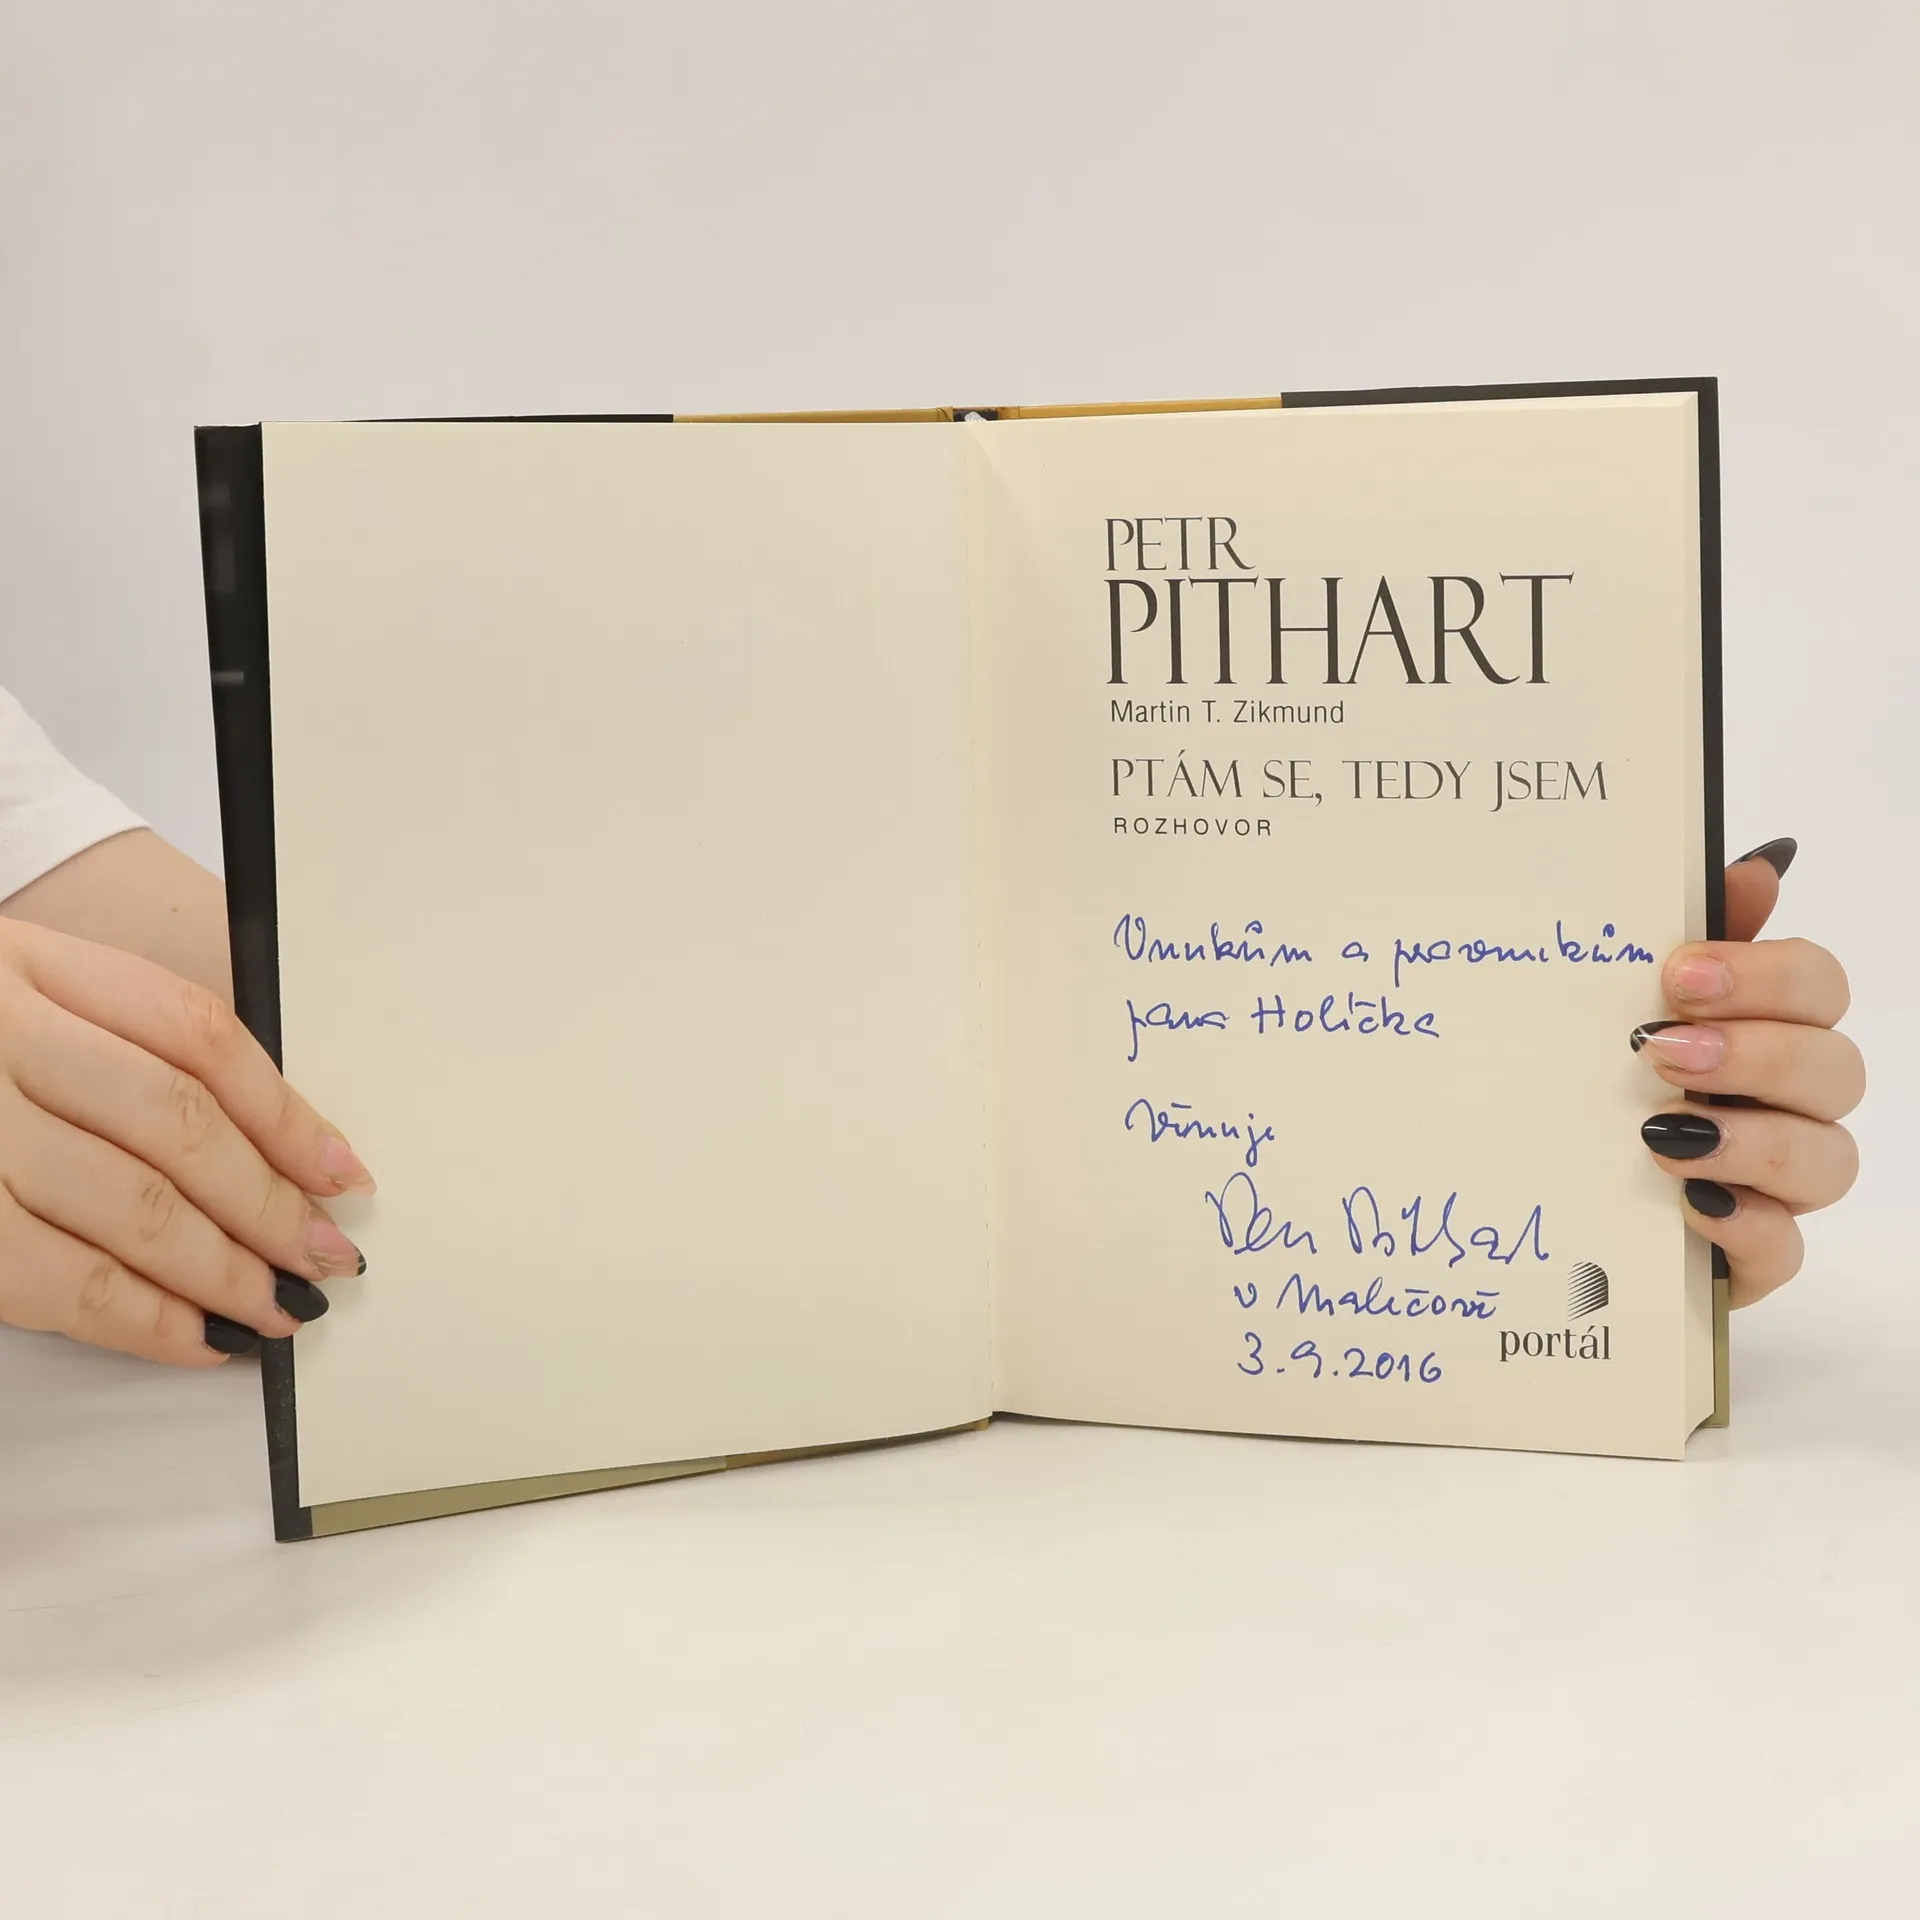 PETR
PITHART
Martin T. Zikmund
PTÁM SE, TEDY JSEM
ROZHOVOR
Vnukům a pravnukům
pana Holíčka
Věnuje
Petr Pithart
v Malíčově
3.9.2016
portál